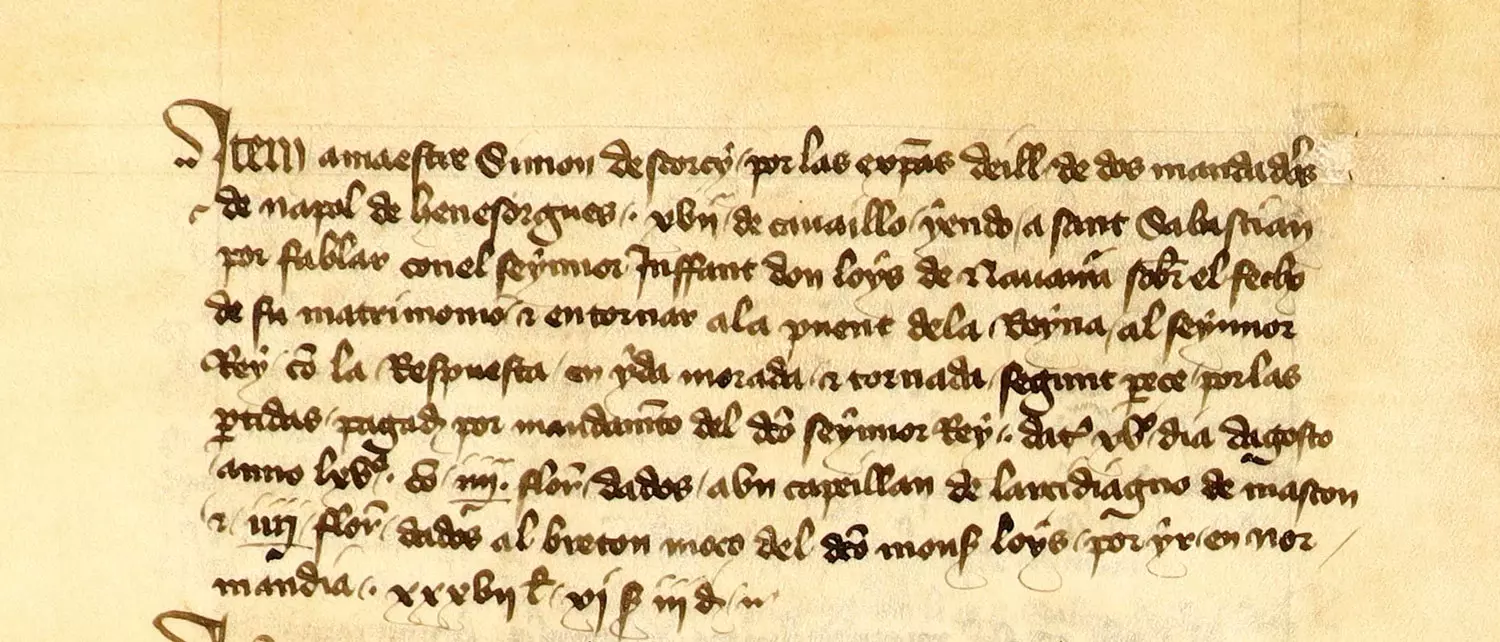 Item a maestre Simon descorcy por las expñas deill de dos mandadõs
de napol de benesorgues . xvij de cavaillo yendo a sant Sabastian
por fablar con el seynnor Inffant don loys de Nauarra sobr el fecho
de su matrimonio & en tornar a la puent de la Reyna al seynnor
Rey cõ la Respuesta en yda morada & tornada segunt pece por las
ptidas pagad por mandamito del dco seynnor Rey . dat xvº dia dagosto
anno lxvº . Cõ iiij . flor dados a vn capeillan de larcidiagno de mascon
& iiij flor dados al breton moco del dco mons loys por yr en nor
mandia . xxxvii l xi s iii d